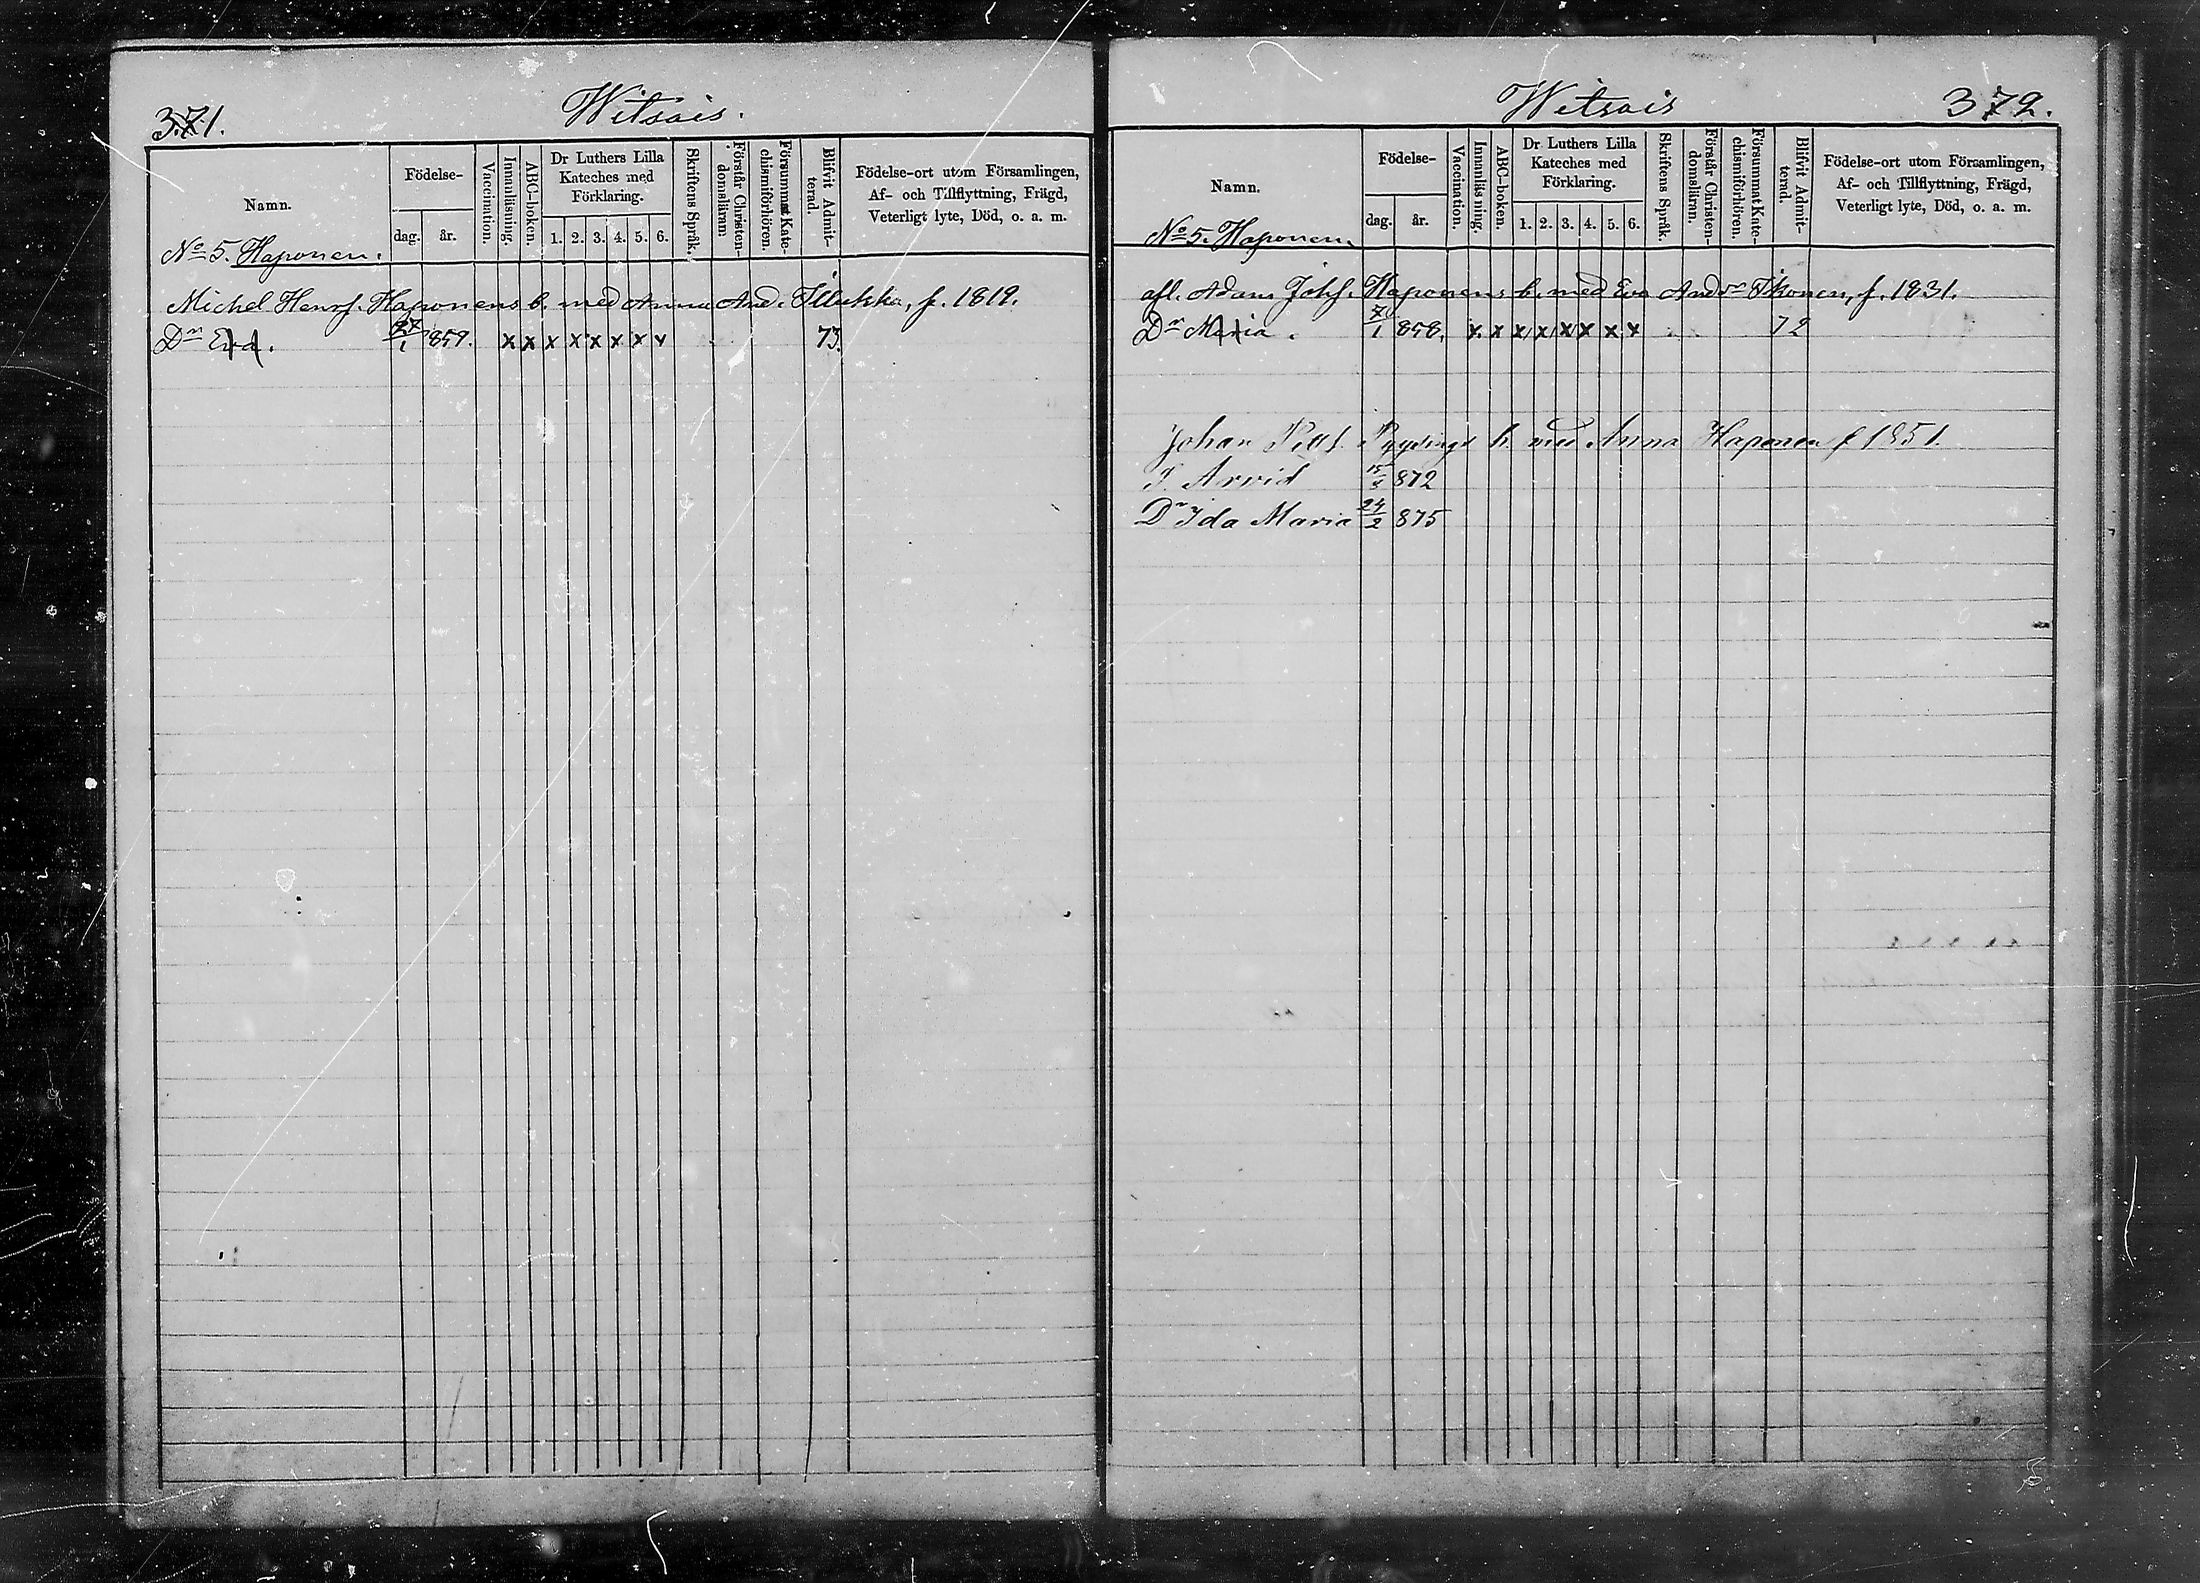 371.
Witsais.
Namn.
Födelse-
dag.
år.
Vaccination.
Innanläsning.
ABC-boken.
Dr Luthers Lilla
Kateches med
Förklaring.
1. 2. 3. 4. 5. 6.
Skriftens Språk.
Förstår Christen-
domsläran.
Försummat Kate-
chismiförhören.
Blifvit Admit-
terad.
Födelse-ort utom Församlingen,
Af- och Tillflyttning, Frägd,
Veterligt lyte, Död, o. a. m.
No 5. Haponen.
Michel Henrs. Haponens b. med Anna And. Illukka, f. 1819.
Dr Eva. 27/1 859. x x x x x x x x 73.
Witsais
372.
Namn.
Födelse-
dag.
år.
Vaccination.
Innanläsning.
ABC-boken.
Dr Luthers Lilla
Kateches med
Förklaring.
1. 2. 3. 4. 5. 6.
Skriftens Språk.
Förstår Christen-
domsläran.
Försummat Kate-
chismiförhören.
Blifvit Admit-
terad.
Födelse-ort utom Församlingen,
Af- och Tillflyttning, Frägd,
Veterligt lyte, Död, o. a. m.
No 5. Haponen.
afl. Adam Johs. Haponens b. med Eva Andrs Ikonen, f. 1831.
Dr Maria. 7/1 858. x x x x x x x x 72
Johan b. med Anna Haponen f 1851.
S. Arvid 872
Dr Ida Maria 24/2 875